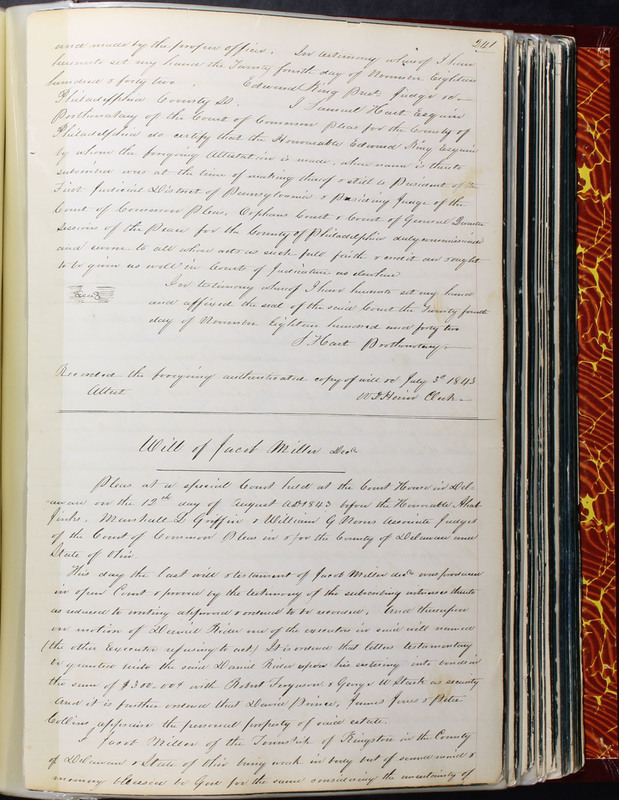 241
and made by the proper officer. In testimony whereof I have
hereunto set my hand the Twenty fourth day of November Eighteen
hundred & forty two. Edward King Prest Judge &c
Philadelphia County SS. I Samuel Hart Esquire
Prothonotary of the Court of Common Pleas for the County of
Philadelphia do certify that the Honourable Edward King Esquire
by whom the foregoing Attestation is made, whose name is thereto
subscribed was at the time of making thereof & still is President of the
First Judicial District of Pennsylvania & Presiding Judge of the
Court of Common Pleas, Orphans Court & Court of General Quarter
Session of the Peace for the County of Philadelphia duly commissioned
and sworn to all whose acts as such full faith & credit are & ought
to be given as well in Courts of Judicature as elsewhere
In testimony whereof I have hereunto set my hand
Seal
and affixed the seal of the said Court the Twenty fourth
day of November Eighteen hundred and forty two
S. Hart Prothonotary
Recorded the foregoing authenticated copy of will on July 3d 1843
Attest Clerk
Will of Jacob Miller Decd
Pleas at a special Court held at the Court House in Del-
aware on the 12th day of August AD 1843 before the Honorable Ahab
Jinks, Marshall L Griffin & William G Norris Associate Judges
of the Court of Common Pleas in & for the County of Delaware and
State of Ohio
This day the last will & testament of Jacob Miller decd was produced
in open Court & proved by the testimony of the subscribing witnesses thereto
as reduced to writing approved & ordered to be recorded, And thereupon
on motion of Daniel Rider one of the executors in said will named
(the other Executor refusing to act) It is ordered that letters testamentary
be granted unto the said Daniel Rider upon his entering into bonds in
the sum of $300.00 with Robert Ferguson & George W Stark as security
And it is further ordered that David Prince, James Jones & Peter
Collins appraise the personal property of said estate.
I Jacob Miller of the Township of Kingston in the County
of Delaware & State of Ohio being weak in body but of sound mind &
memory blessed be God for the same considering the uncertainty of